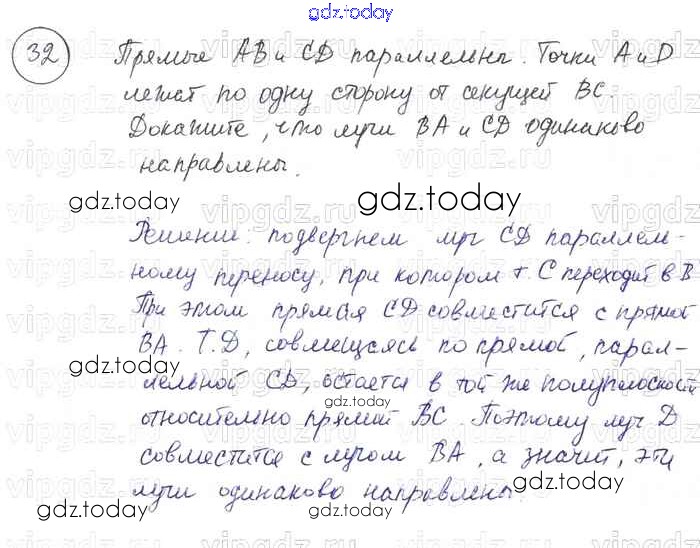 gdz.today
32 Прямые AB и CD параллельны. Точки A и D
лежат по одну сторону от секущей BC.
Докажите, что лучи BA и CD одинаково
направлены.
gdz.today
gdz.today
Решение: подвергнем луч CD параллель-
ному переносу, при котором т. C переходит в B
При этом прямая CD совместится с прямой
BA. Т. D, совмещаясь по прямой, парал-
gdz.today
лельной CD, остается в той же полуплоскости
gdz.today
относительно прямой BC. Поэтому луч D
совместится с лучом BA, а значит, эти
лучи одинаково направлены.
gdz.today
gdz.today